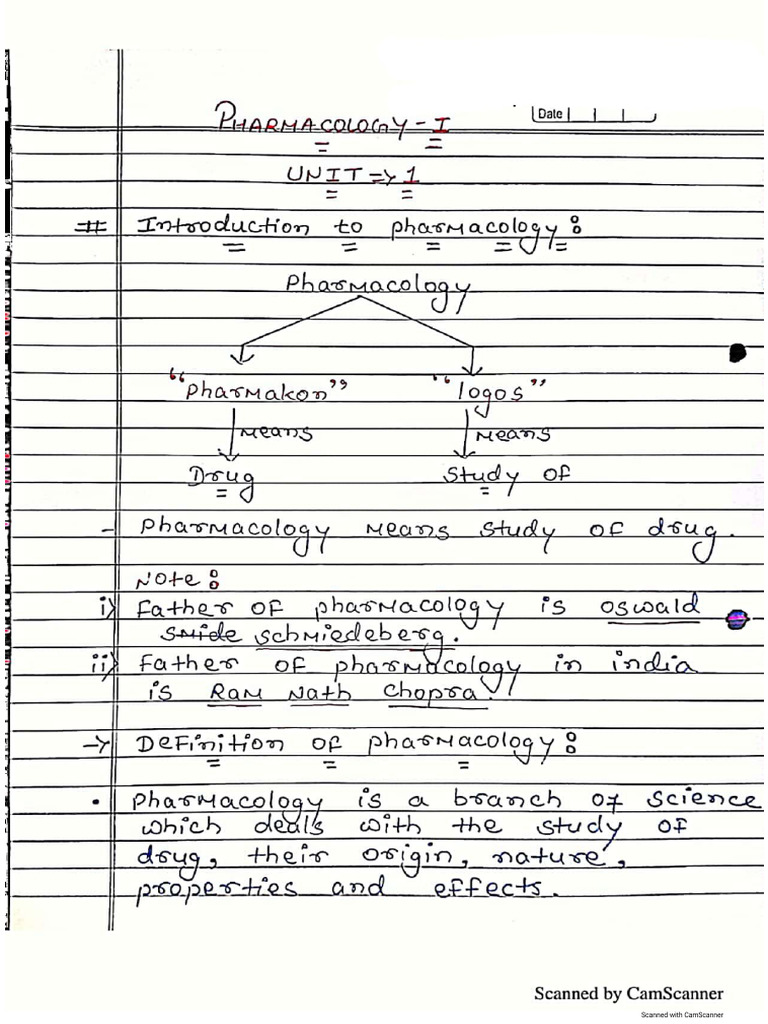 PHARMACOLOGY - I
Date
UNIT => 1
# Introduction to pharmacology :
Pharmacology
"Pharmakon" "logos"
Means Means
Drug Study of
- Pharmacology means study of drug.
Note :
i) Father of pharmacology is oswald
Smide schmiedeberg.
ii) Father of pharmacology in india
is Ram Nath Chopra.
→ Definition of pharmacology :
• Pharmacology is a branch of science
which deals with the study of
drug, their origin, nature,
properties and effects.
Scanned by CamScanner
Scanned with CamScanner